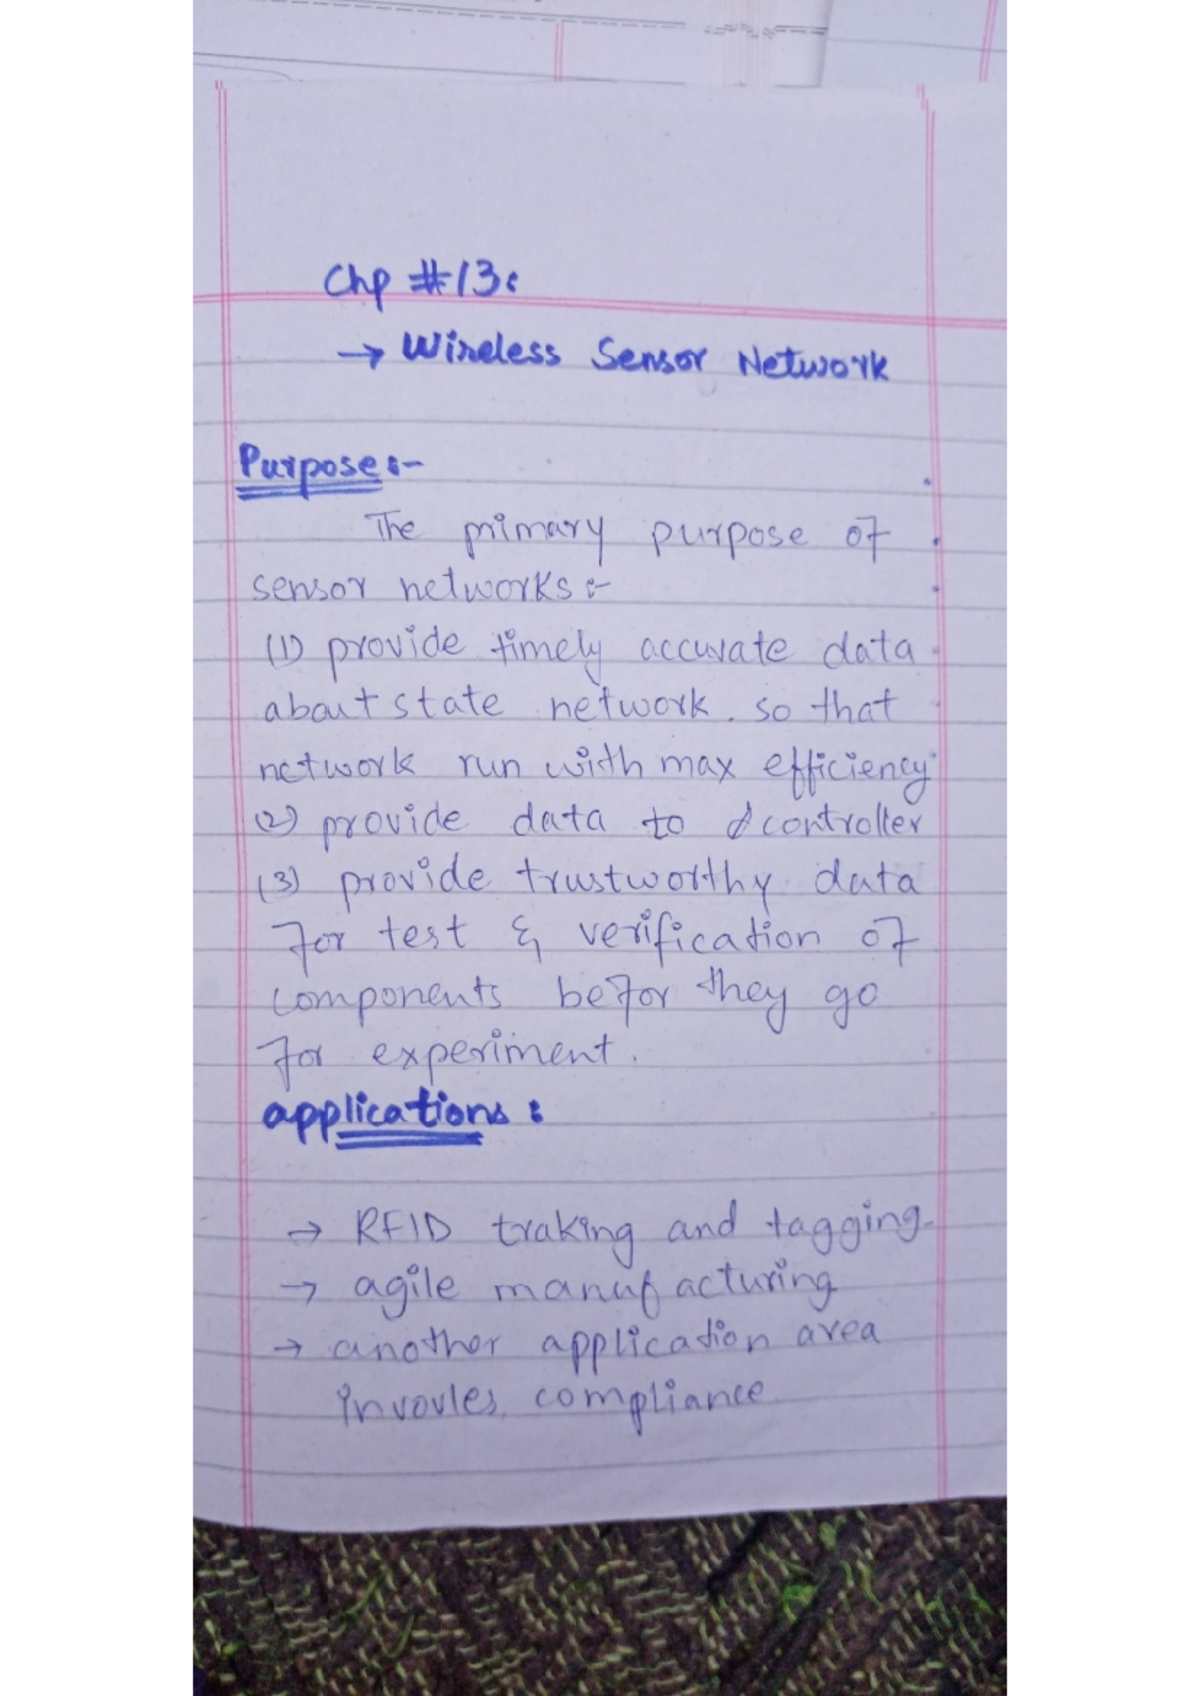 Chp #13:
→ Wireless Sensor Network
Purpose:-
The primary purpose of
sensor networks :-
(1) provide timely accurate data
about state network. so that
network run with max efficiency
(2) provide data to controller
(3) provide trustworthy data
for test & verification of
components befor they go
for experiment.
applications :
→ RFID traking and tagging.
→ agile manufacturing
→ another application area
invovles compliance